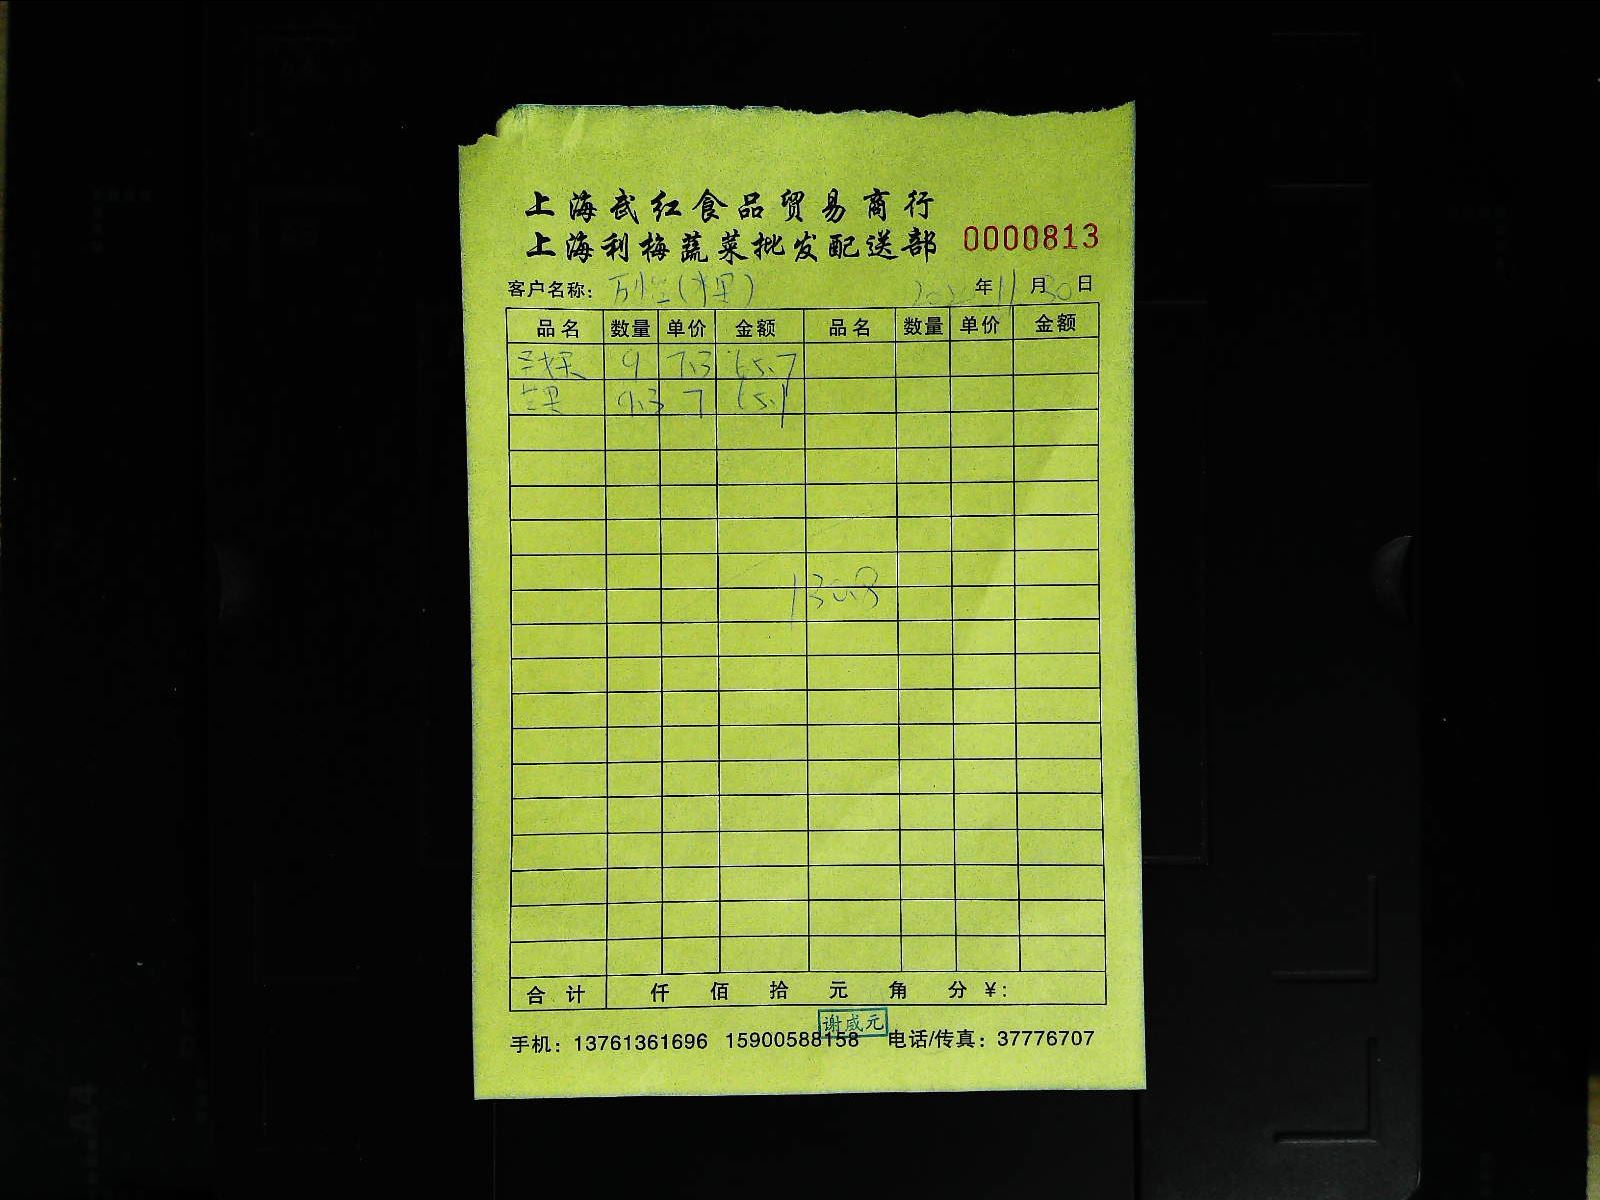 上海武红食品贸易商行
上海利梅蔬菜批发配送部 0000813
客户名称： 年11月30日
品名 数量 单价 金额 品名 数量 单价 金额
9 7.3 65.7
芒果 9.3 7 65.1
130.8
合计 仟 佰 拾 元 角 分 ¥:
谢咸元
手机：13761361696 15900588158 电话/传真：37776707